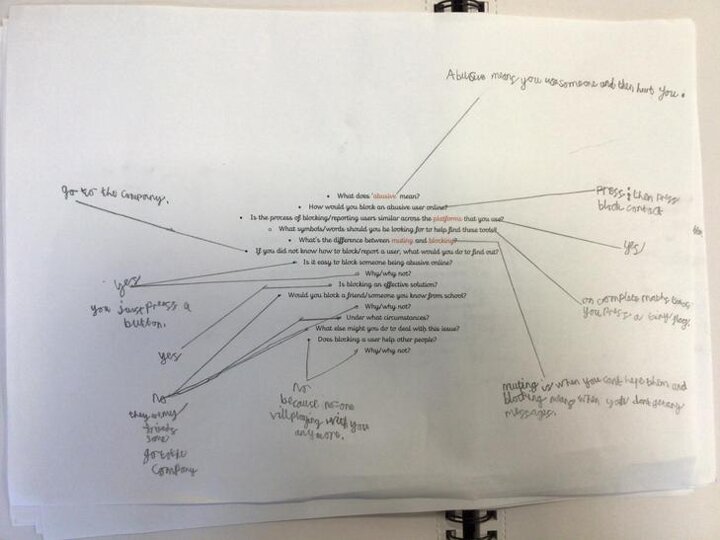 Abusive means you use someone and then hurt you.
go to the company.
• What does 'abusive' mean?
• How would you block an abusive user online?
• Is the process of blocking/reporting users similar across the platforms that you use?
○ What symbols/words should you be looking for to help find these tools?
• What's the difference between muting and blocking?
• If you did not know how to block/report a user, what would you do to find out?
• Is it easy to block someone being abusive online?
○ Why/why not?
• Is blocking an effective solution?
• Would you block a friend/someone you know from school?
○ Why/why not?
○ Under what circumstances?
• What else might you do to deal with this issue?
• Does blocking a user help other people?
○ Why/why not?
press then press
block contact
yes
on complete maths
you press a flag.
muting is when you cant them and
blocking means when you dont get any
messages.
yes
you just press a
button.
yes
No
they
go to the
company
No
because no-one
will with you
any more.